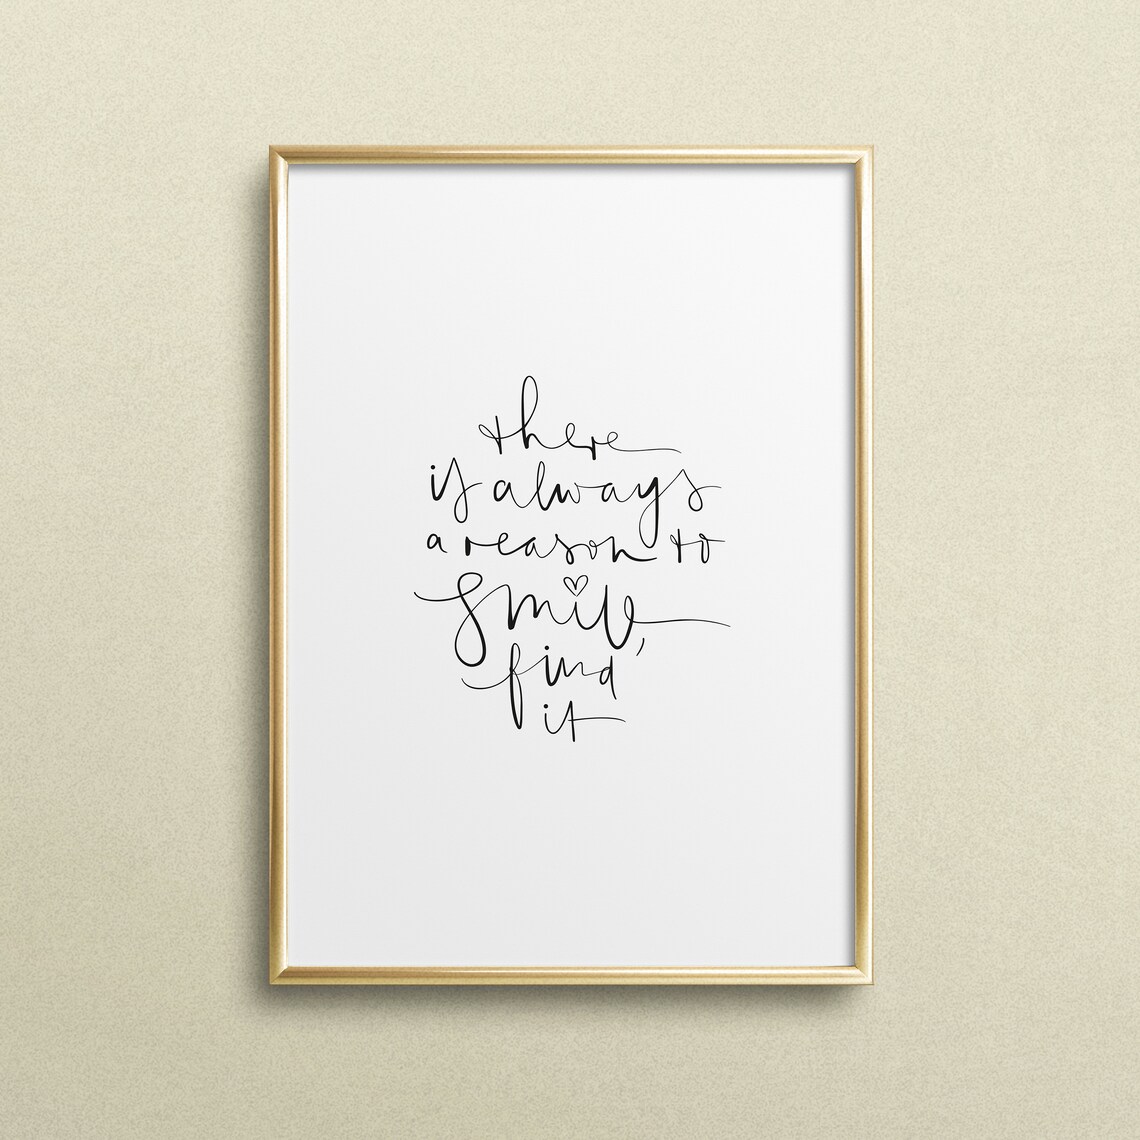 there
is always
a reason to
Smile,
find
it